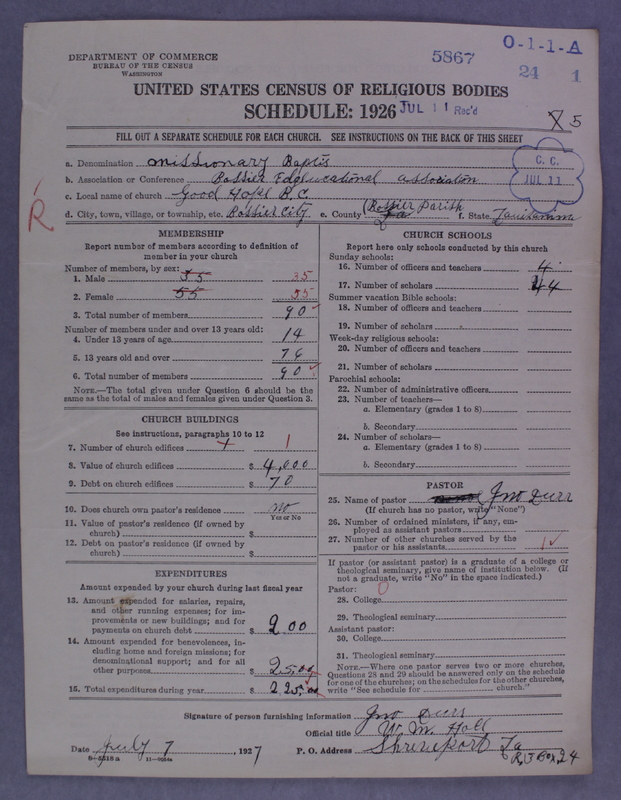 DEPARTMENT OF COMMERCE
BUREAU OF THE CENSUS
WASHINGTON
5867
O-1-1-A
24 1
UNITED STATES CENSUS OF RELIGIOUS BODIES
SCHEDULE: 1926
JUL 11 Rec'd
X 5
FILL OUT A SEPARATE SCHEDULE FOR EACH CHURCH. SEE INSTRUCTIONS ON THE BACK OF THIS SHEET
C. C.
JUL 11
R
a. Denomination Missionary Baptis
b. Association or Conference Bossier Edglucational association
c. Local name of church Good Hope B.C.
d. City, town, village, or township, etc. Bossier City e. County (Bossier Parish La f. State Louisamma
MEMBERSHIP
Report number of members according to definition of member in your church
Number of members, by sex:
1. Male 35 35
2. Female 55 55
3. Total number of members 90
Number of members under and over 13 years old:
4. Under 13 years of age 14
5. 13 years old and over 76
6. Total number of members 90
NOTE.—The total given under Question 6 should be the same as the total of males and females given under Question 3.
CHURCH BUILDINGS
See instructions, paragraphs 10 to 12
7. Number of church edifices 1
8. Value of church edifices $ 4,000
9. Debt on church edifices $ 70
10. Does church own pastor's residence no
Yes or No
11. Value of pastor's residence (if owned by church) $
12. Debt on pastor's residence (if owned by church) $
EXPENDITURES
Amount expended by your church during last fiscal year
13. Amount expended for salaries, repairs, and other running expenses; for improvements or new buildings; and for payments on church debt $ 2.00
14. Amount expended for benevolences, including home and foreign missions; for denominational support; and for all other purposes $ 25.00
15. Total expenditures during year $ 225.00
CHURCH SCHOOLS
Report here only schools conducted by this church
Sunday schools:
16. Number of officers and teachers 4
17. Number of scholars 44
Summer vacation Bible schools:
18. Number of officers and teachers
19. Number of scholars
Week-day religious schools:
20. Number of officers and teachers
21. Number of scholars
Parochial schools:
22. Number of administrative officers
23. Number of teachers—
a. Elementary (grades 1 to 8)
b. Secondary
24. Number of scholars—
a. Elementary (grades 1 to 8)
b. Secondary
PASTOR
25. Name of pastor Jno Durr
(If church has no pastor, write "None")
26. Number of ordained ministers, if any, employed as assistant pastors
27. Number of other churches served by the pastor or his assistants 1
If pastor (or assistant pastor) is a graduate of a college or theological seminary, give name of institution below. (If not a graduate, write "No" in the space indicated.)
Pastor: 0
28. College
29. Theological seminary
Assistant pastor:
30. College
31. Theological seminary
NOTE.—Where one pastor serves two or more churches, Questions 28 and 29 should be answered only on the schedule for one of the churches; on the schedules for the other churches, write "See schedule for church."
Signature of person furnishing information Jno Durr
Official title W. M. Hall
Date July 7, 1927 P. O. Address Shreveport La
R, 5 Box 24
8—5518 a 11—9084a